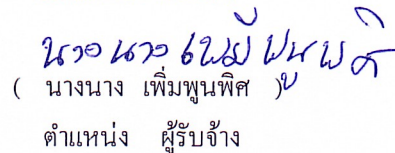 นางนาง เพิ่มพูนพิศ
( นางนาง เพิ่มพูนพิศ )
ตำแหน่ง ผู้รับจ้าง